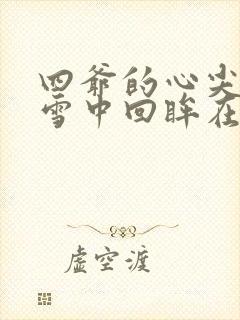 四爷的心尖
雪中回眸在
虚空渡